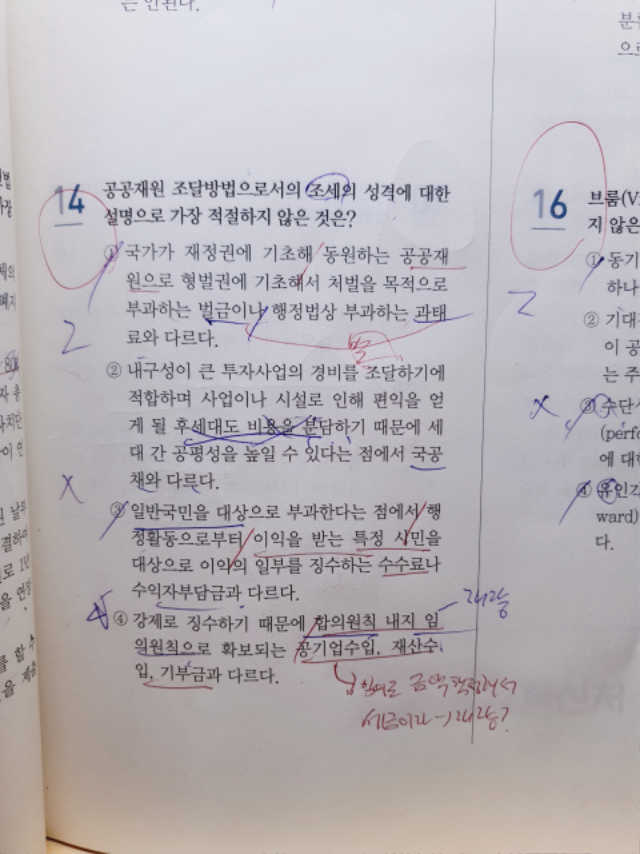 는 안된다.
14 공공재원 조달방법으로서의 조세의 성격에 대한
설명으로 가장 적절하지 않은 것은?
① 국가가 재정권에 기초해 동원하는 공공재
원으로 형벌권에 기초해서 처벌을 목적으로
부과하는 벌금이나 행정법상 부과하는 과태
료와 다르다.
벌
2
② 내구성이 큰 투자사업의 경비를 조달하기에
적합하며 사업이나 시설로 인해 편익을 얻
게 될 후세대도 비용을 분담하기 때문에 세
대 간 공평성을 높일 수 있다는 점에서 국공
채와 다르다.
X
③ 일반국민을 대상으로 부과한다는 점에서 행
정활동으로부터 이익을 받는 특정 시민을
대상으로 이익의 일부를 징수하는 수수료나
수익자부담금과 다르다.
④ 강제로 징수하기 때문에 합의원칙 내지 임
의원칙으로 확보되는 공기업수입, 재산수
입, 기부금과 다르다.
16 브룸(V
지 않은
① 동기
하나
2
② 기대
이 공
는 주
X
③ 수단
(perfo
에 대
④ 유인
ward)
다.